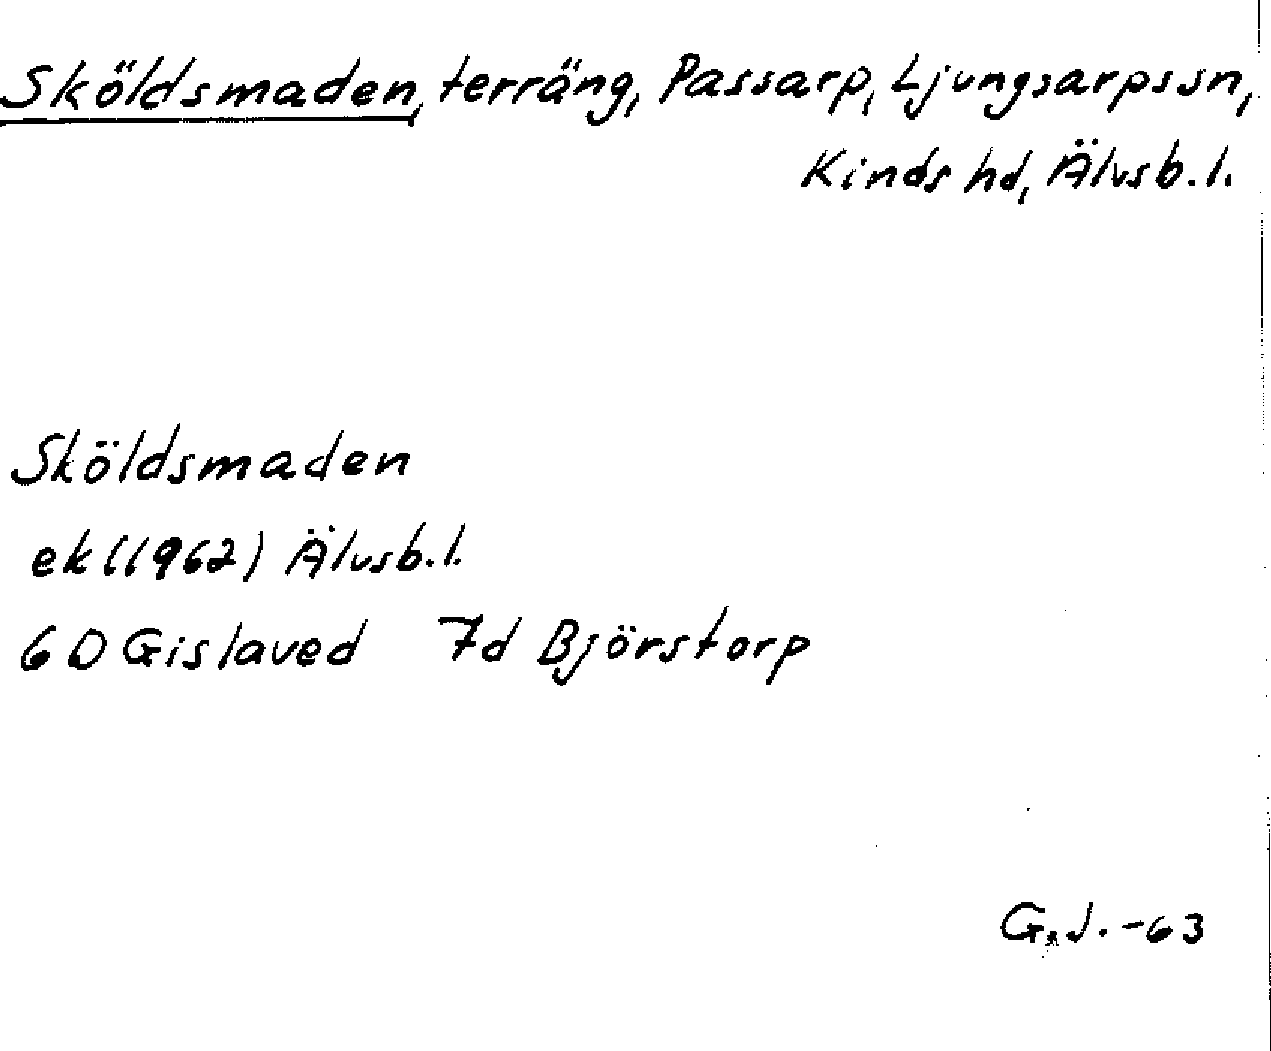 Sköldsmaden, terräng, Passarp, Ljungsarps sn,
Kinds hd, Älvsb. l.
Sköldsmaden
ek (1962) Älvsb. l.
6 D Gislaved 7d Björstorp
G. J. -63